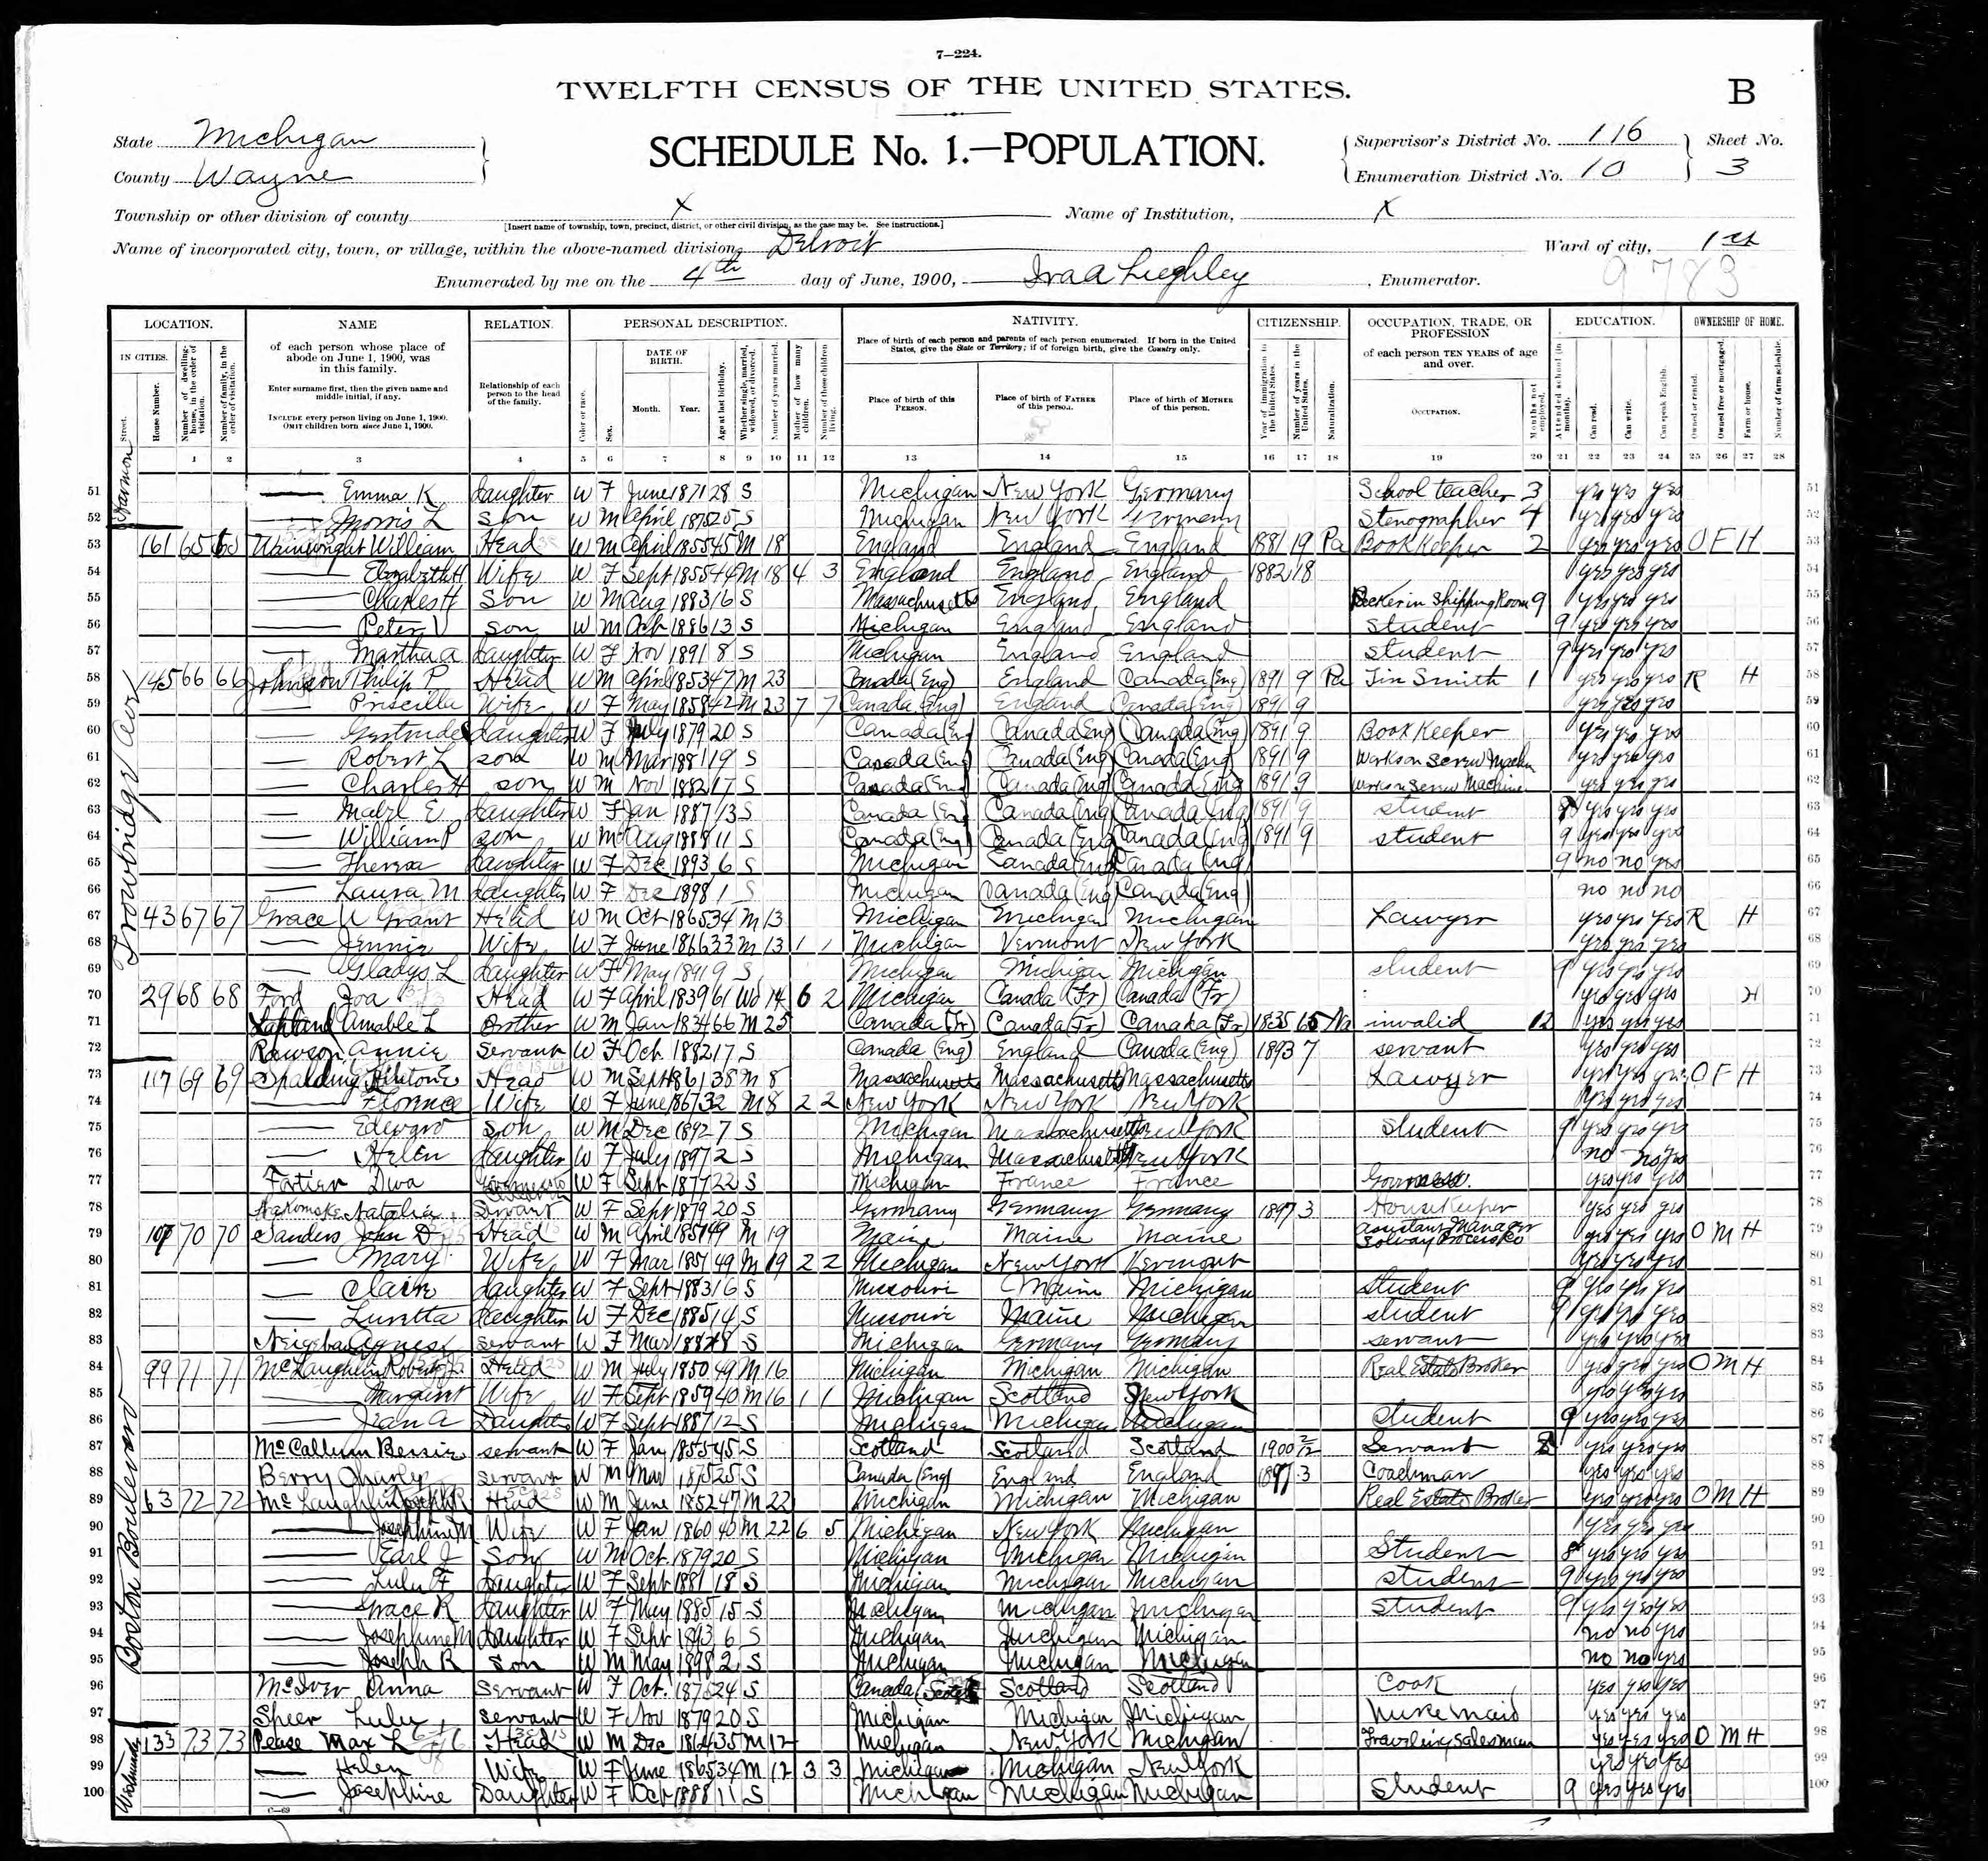 7—224.
TWELFTH CENSUS OF THE UNITED STATES.
B
State Michigan
County Wayne
SCHEDULE No. 1.—POPULATION.
Supervisor's District No. 116
Enumeration District No. 10
Sheet No. 3
Township or other division of county X
[Insert name of township, town, precinct, district, or other civil division, as the case may be. See instructions.]
Name of Institution, X
Name of incorporated city, town, or village, within the above-named division, Detroit
Ward of city, 1st
9783
Enumerated by me on the 4th day of June, 1900, Ira A Lieghley, Enumerator.
LOCATION. NAME RELATION. PERSONAL DESCRIPTION. NATIVITY. CITIZENSHIP. OCCUPATION, TRADE, OR PROFESSION EDUCATION. OWNERSHIP OF HOME.
IN CITIES. Street. House Number.
Number of dwelling-house, in the order of visitation.
Number of family, in the order of visitation.
of each person whose place of abode on June 1, 1900, was in this family.
Enter surname first, then the given name and middle initial, if any.
INCLUDE every person living on June 1, 1900.
OMIT children born since June 1, 1900.
Relationship of each person to the head of the family.
Color or race.
Sex.
DATE OF BIRTH. Month. Year.
Age at last birthday.
Whether single, married, widowed, or divorced.
Number of years married.
Mother of how many children.
Number of these children living.
Place of birth of each person and parents of each person enumerated. If born in the United States, give the State or Territory; if of foreign birth, give the Country only.
Place of birth of this PERSON.
Place of birth of FATHER of this person.
Place of birth of MOTHER of this person.
Year of immigration to the United States.
Number of years in the United States.
Naturalization.
of each person TEN YEARS of age and over.
OCCUPATION.
Months not employed.
Attended school (in months).
Can read.
Can write.
Can speak English.
Owned or rented.
Owned free or mortgaged.
Farm or house.
Number of farm schedule.
1 2 3 4 5 6 7 8 9 10 11 12 13 14 15 16 17 18 19 20 21 22 23 24 25 26 27 28
Trowbridge Ave
Boston Boulevard
51 — Emma K daughter W F June 1871 28 S Michigan New York Germany School teacher 3 yes yes yes 51
52 — Morris L son W M April 1875 25 S Michigan New York Germany Stenographer 4 yes yes yes 52
53 161 65 65 Wainwright William Head W M April 1855 45 M 18 England England England 1881 19 Pa Book Keeper 2 yes yes yes O F H 53
54 — Elizabeth H Wife W F Sept 1855 44 M 18 4 3 England England England 1882 18 yes yes yes 54
55 — Charles H Son W M Aug 1883 16 S Massachusetts England England Packer in Shipping Room 9 yes yes yes 55
56 — Peter V son W M Oct 1886 13 S Michigan England England student 9 yes yes yes 56
57 — Martha A daughter W F Nov 1891 8 S Michigan England England student 9 yes yes yes 57
58 145 66 66 Johnson Philip P Head W M April 1853 47 M 23 Canada (Eng) England Canada (Eng) 1891 9 Pa Tin Smith 1 yes yes yes R H 58
59 — Priscilla Wife W F May 1858 42 M 23 7 7 Canada (Eng) England Canada (Eng) 1891 9 yes yes yes 59
60 — Gertrude daughter W F July 1879 20 S Canada (Eng) Canada (Eng) Canada (Eng) 1891 9 Book Keeper yes yes yes 60
61 — Robert L son W M Mar 1881 19 S Canada (Eng) Canada (Eng) Canada (Eng) 1891 9 Works on Screw Machin yes yes yes 61
62 — Charles H son W M Nov 1882 17 S Canada (Eng) Canada (Eng) Canada (Eng) 1891 9 Works on Screw Machine yes yes yes 62
63 — Mabel E daughter W F Jan 1887 13 S Canada (Eng) Canada (Eng) Canada (Eng) 1891 9 student 8 yes yes yes 63
64 — William P son W M Aug 1888 11 S Canada (Eng) Canada (Eng) Canada (Eng) 1891 9 student 9 yes yes yes 64
65 — Theresa daughter W F Dec 1893 6 S Michigan Canada (Eng) Canada (Eng) 9 no no yes 65
66 — Laura M daughter W F Dec 1898 1 S Michigan Canada (Eng) Canada (Eng) no no no 66
67 43 67 67 Grace W Grant Head W M Oct 1865 34 M 13 Michigan Michigan Michigan Lawyer yes yes yes R H 67
68 — Jennie Wife W F June 1866 33 M 13 1 1 Michigan Vermont New York yes yes yes 68
69 — Gladys L daughter W F May 1891 9 S Michigan Michigan Michigan student 9 yes yes yes 69
70 29 68 68 Ford Head W F April 1839 61 Wd 14 6 2 Michigan Canada (Fr) Canada (Fr) yes yes yes H 70
71 Amable L Brother W M Jan 1834 66 M 25 Canada (Fr) Canada (Fr) Canada (Fr) 1835 65 Na invalid 12 yes yes yes 71
72 Rawson Annie Servant W F Oct 1882 17 S Canada (Eng) England Canada (Eng) 1893 7 servant yes yes yes 72
73 117 69 69 Spalding Head W M Sept 1861 38 M 8 Massachusetts Massachusetts Massachusetts Lawyer yes yes yes O F H 73
74 — Florence Wife W F June 1867 32 M 8 2 2 New York New York New York yes yes yes 74
75 — Edward son W M Dec 1892 7 S Michigan Massachusetts New York student 9 yes yes yes 75
76 — Helen daughter W F July 1897 2 S Michigan Massachusetts New York no no yes 76
77 Fortier Diva W F Sept 1877 22 S Michigan France France Governess yes yes yes 77
78 Natalia Servant W F Sept 1879 20 S Germany Germany Germany 1897 3 House Keeper yes yes yes 78
79 107 70 70 Sanders John D Head W M April 1851 49 M 19 Maine Maine Maine Assistant Manager Solvay Process Co yes yes yes O M H 79
80 — Mary Wife W F Mar 1851 49 M 19 2 2 Michigan New York Vermont yes yes yes 80
81 — Clair daughter W F Sept 1883 16 S Missouri Maine Michigan student 9 yes yes yes 81
82 — Luretta daughter W F Dec 1885 14 S Missouri Maine Michigan student 9 yes yes yes 82
83 Agnes servant W F Mar 1882 18 S Michigan Germany Germany servant yes yes yes 83
84 99 71 71 McLaughlin Robert J Head W M July 1850 49 M 16 Michigan Michigan Michigan Real Estate Broker yes yes yes O M H 84
85 — Margaret Wife W F Sept 1859 40 M 16 1 1 Michigan Scotland New York yes yes yes 85
86 — Jean A Daughter W F Sept 1887 12 S Michigan Michigan Michigan student 9 yes yes yes 86
87 McCallum Bessie servant W F Jan 1855 45 S Scotland Scotland Scotland 1900 2/12 Servant 8 yes yes yes 87
88 Berry Charly servant W M Mar 1875 25 S Canada (Eng) England England 1897 3 Coachman yes yes yes 88
89 63 72 72 McLaughlin Joseph R Head W M June 1852 47 M 22 Michigan Michigan Michigan Real Estate Broker yes yes yes O M H 89
90 — Josephine M Wife W F Jan 1860 40 M 22 6 5 Michigan New York Michigan yes yes yes 90
91 — Earl J Son W M Oct 1879 20 S Michigan Michigan Michigan Student 8 yes yes yes 91
92 — Lulu F daughter W F Sept 1881 18 S Michigan Michigan Michigan student 9 yes yes yes 92
93 — Grace R daughter W F May 1885 15 S Michigan Michigan Michigan student 9 yes yes yes 93
94 — Josephine M daughter W F Sept 1893 6 S Michigan Michigan Michigan no no yes 94
95 — Joseph R son W M May 1898 2 S Michigan Michigan Michigan no no yes 95
96 McIver Anna Servant W F Oct. 1875 24 S Canada Scotland Scotland Cook yes yes yes 96
97 Speer Lulu servant W F Nov 1879 20 S Michigan Michigan Michigan Nurse Maid yes yes yes 97
98 133 73 73 Pease Max L Head W M Dec 1864 35 M 12 Michigan New York Michigan Traveling Salesman yes yes yes O M H 98
99 — Helen Wife W F June 1865 34 M 12 3 3 Michigan Michigan New York yes yes yes 99
100 — Josephine Daughter W F Oct 1888 11 S Michigan Michigan Michigan Student 9 yes yes yes 100